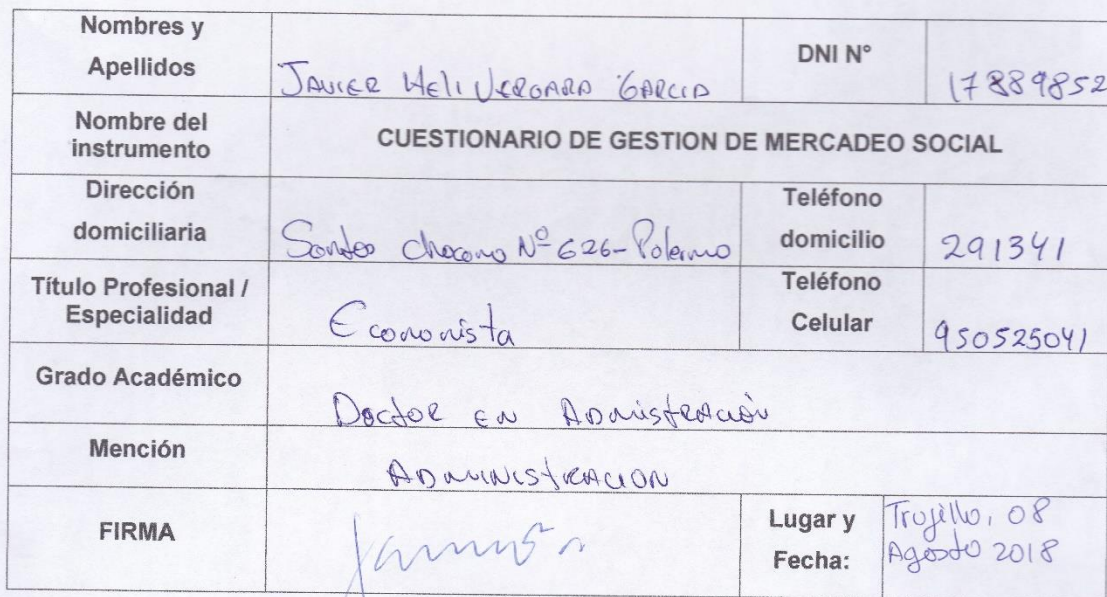 Nombres y
Apellidos
JAVIER HELI VERGARA GARCIA
DNI N°
17889852
Nombre del
instrumento
CUESTIONARIO DE GESTION DE MERCADEO SOCIAL
Dirección
domiciliaria
Santos Chocano Nº 626-Palermo
Teléfono
domicilio
291341
Título Profesional /
Especialidad
Economista
Teléfono
Celular
950525041
Grado Académico
Doctor EN ADMistRACIÓN
Mención
ADMINISTRACION
FIRMA
Lugar y
Fecha:
Trujillo, 08
Agosto 2018